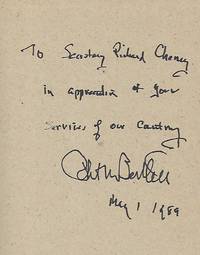 To Secretary Richard Cheney
in appreciation of your
services of our Country
May 1 1989